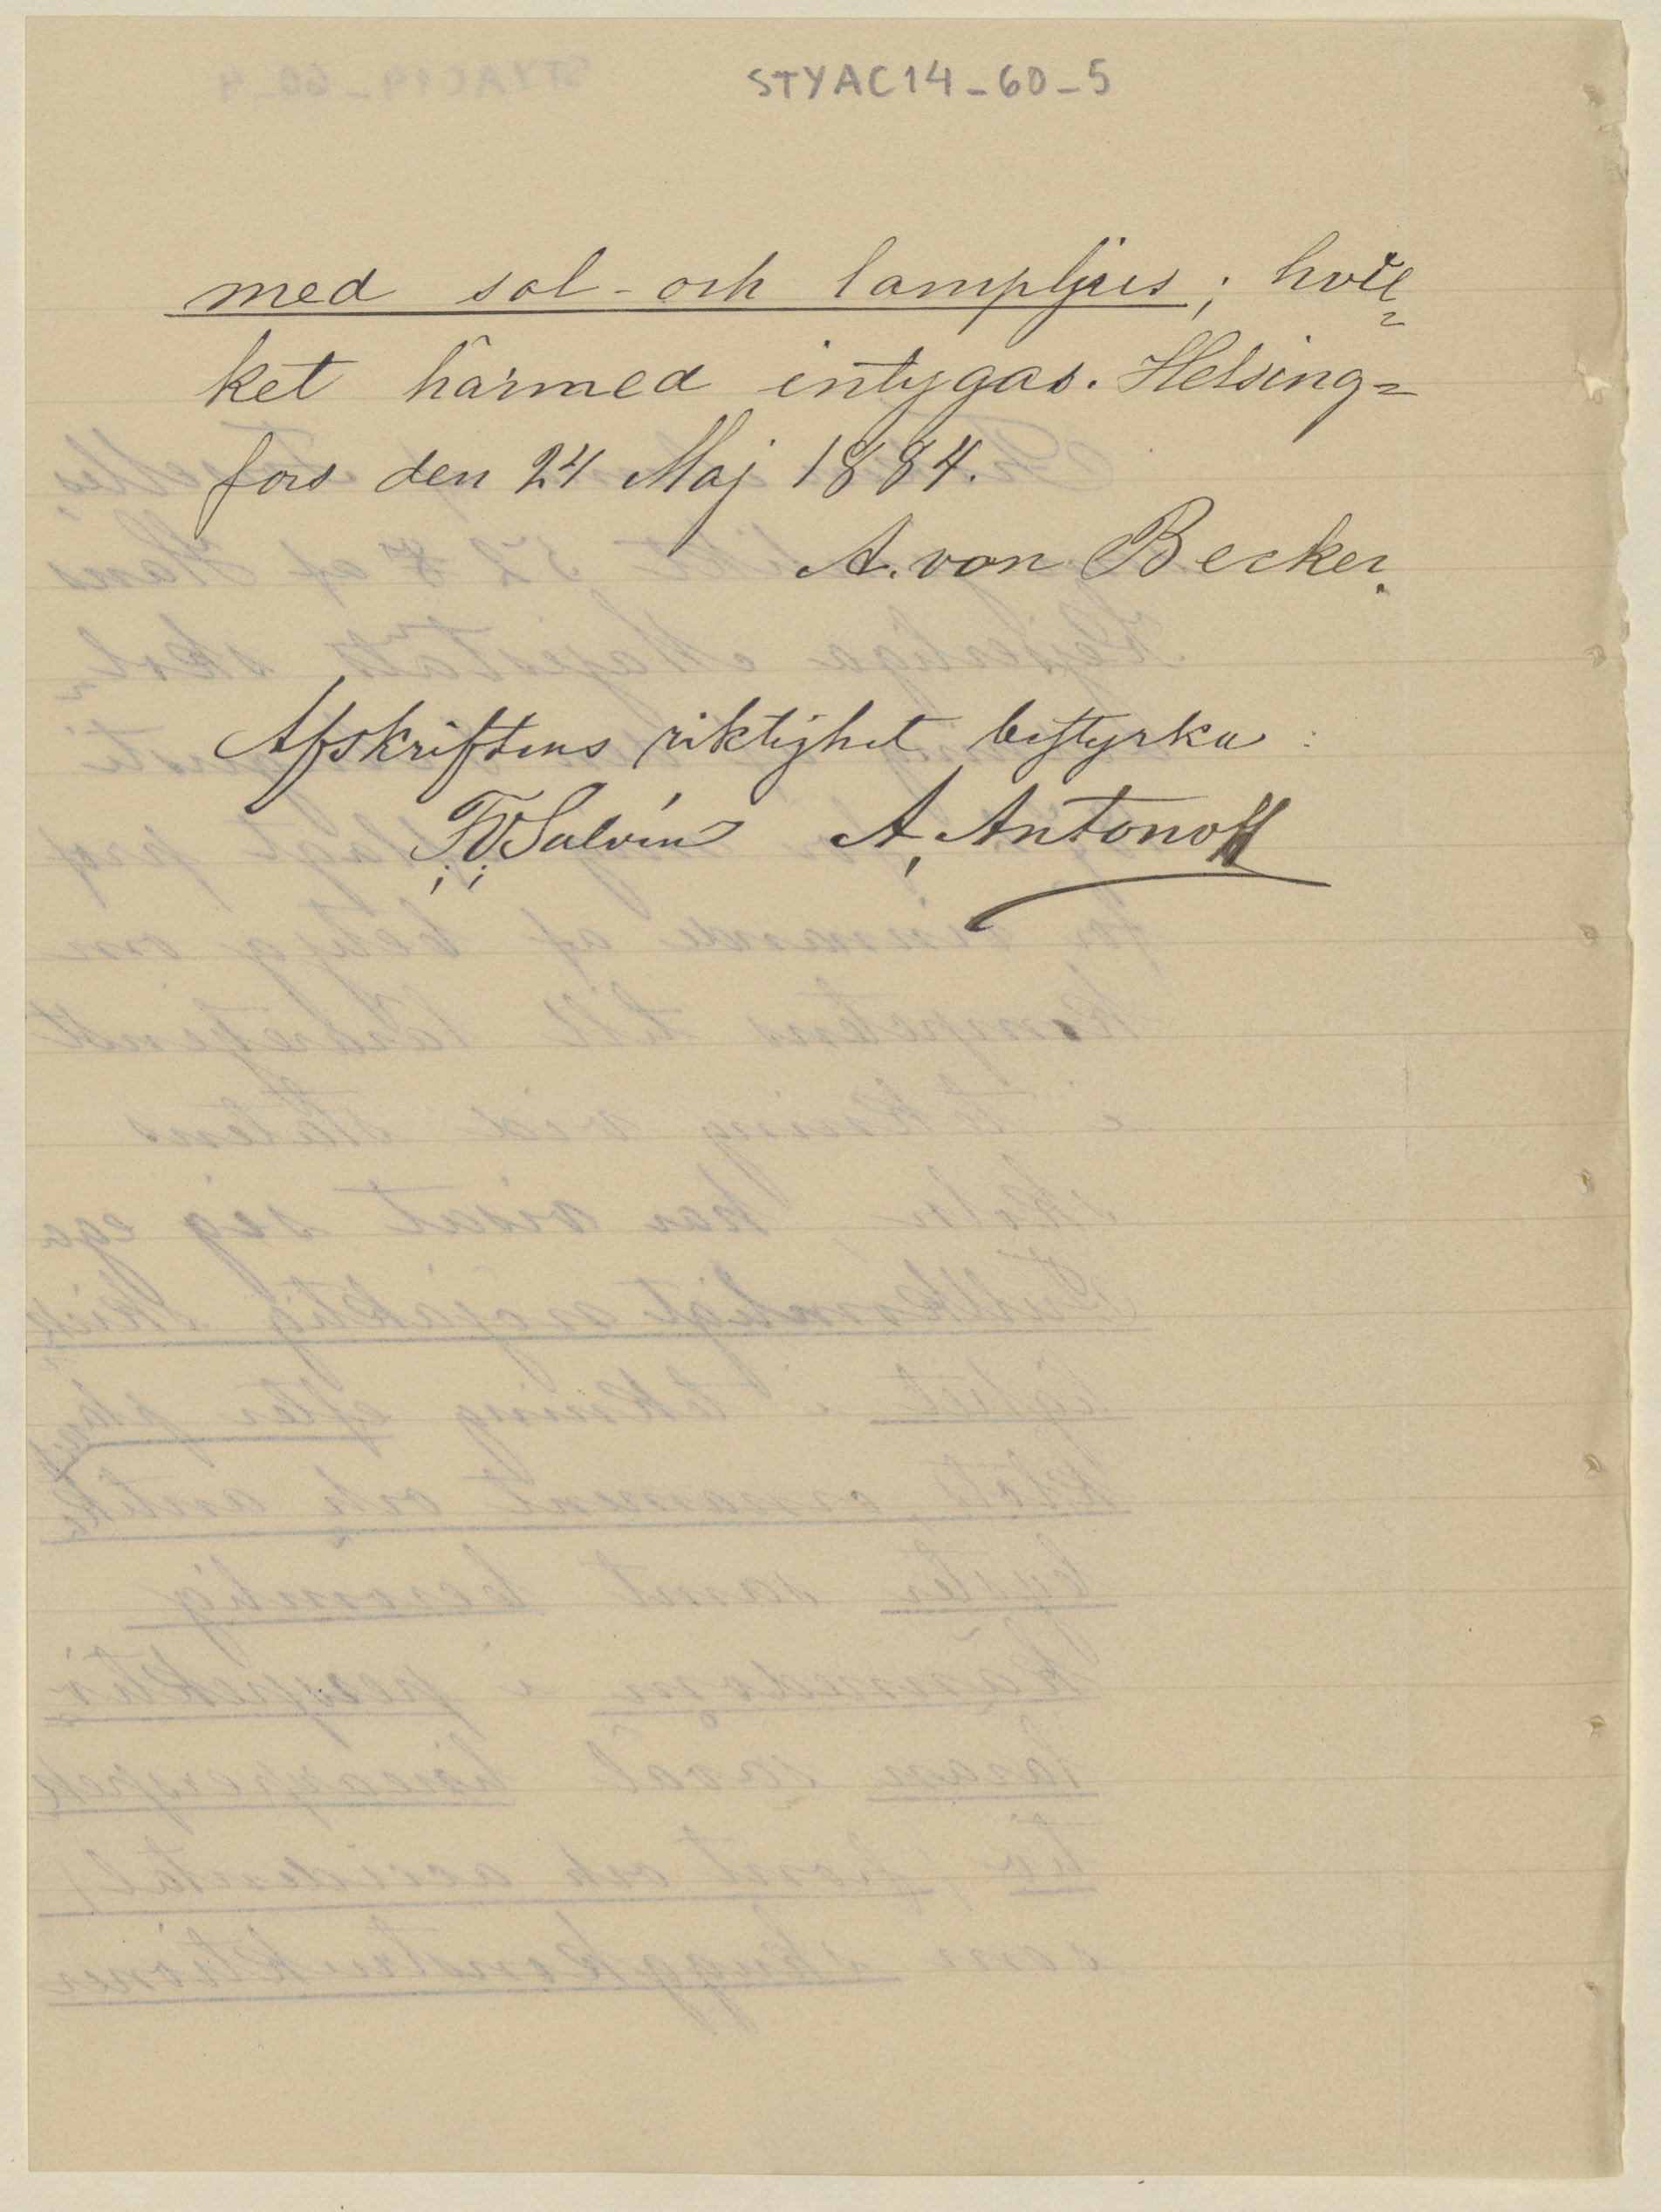 STYAC14_60_5
med sol- och lampljus; hvil=
ket härmed intygas. Helsing=
fors den 24 Maj 1884.
A. von Becker.
Afskriftens riktighet bestyrka:
A. Antonoff